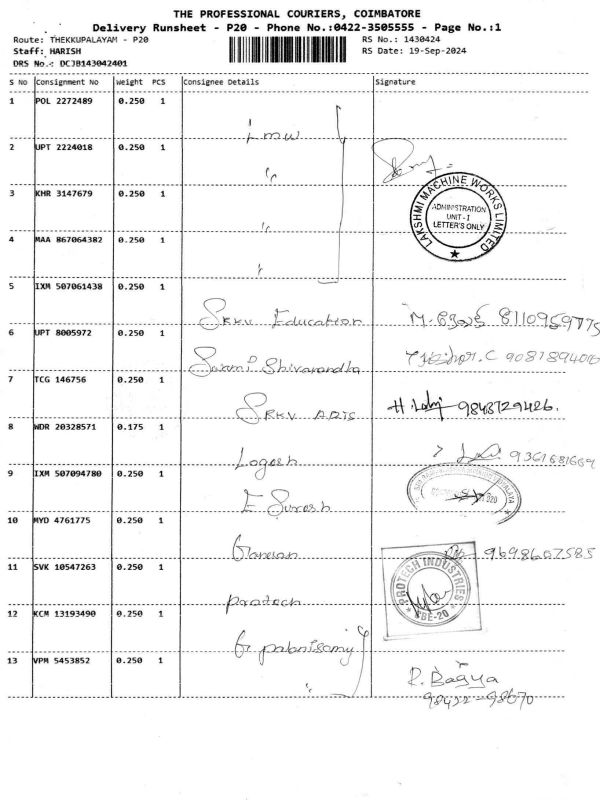 THE PROFESSIONAL COURIERS, COIMBATORE
Delivery Runsheet - P20 - Phone No.:0422-3505555 - Page No.:1
Route: THEKKUPALAYAM - P20
RS No.: 1430424
Staff: HARISH
RS Date: 19-Sep-2024
DRS No.: DCJB143042401
S No Consignment No Weight PCS Consignee Details Signature
1 POL 2272489 0.250 1
Lmw
2 UPT 2224018 0.250 1
"
3 KHR 3147679 0.250 1
"
LAKSHMI MACHINE WORKS LIMITED
ADMINISTRATION
UNIT-I
LETTER'S ONLY
4 MAA 867064382 0.250 1
"
5 IXM 507061438 0.250 1
SRKV Education 8110959775
6 UPT 8005972 0.250 1
Swami Shivanandha
7 TCG 146756 0.250 1
SRKV ARTS 9843729426.
8 WDR 20328571 0.175 1
Logesh 9361681669
9 IXM 507094780 0.250 1
E Suresh
10 MYD 4761775 0.250 1
Ganesan 9698607585
11 SVK 10547263 0.250 1
protech
PROTECH INDUSTRIES
CBE-20
12 KCM 13193490 0.250 1
G. palanisamy
13 VPM 5453852 0.250 1
"
R. Bagya
98422-98670